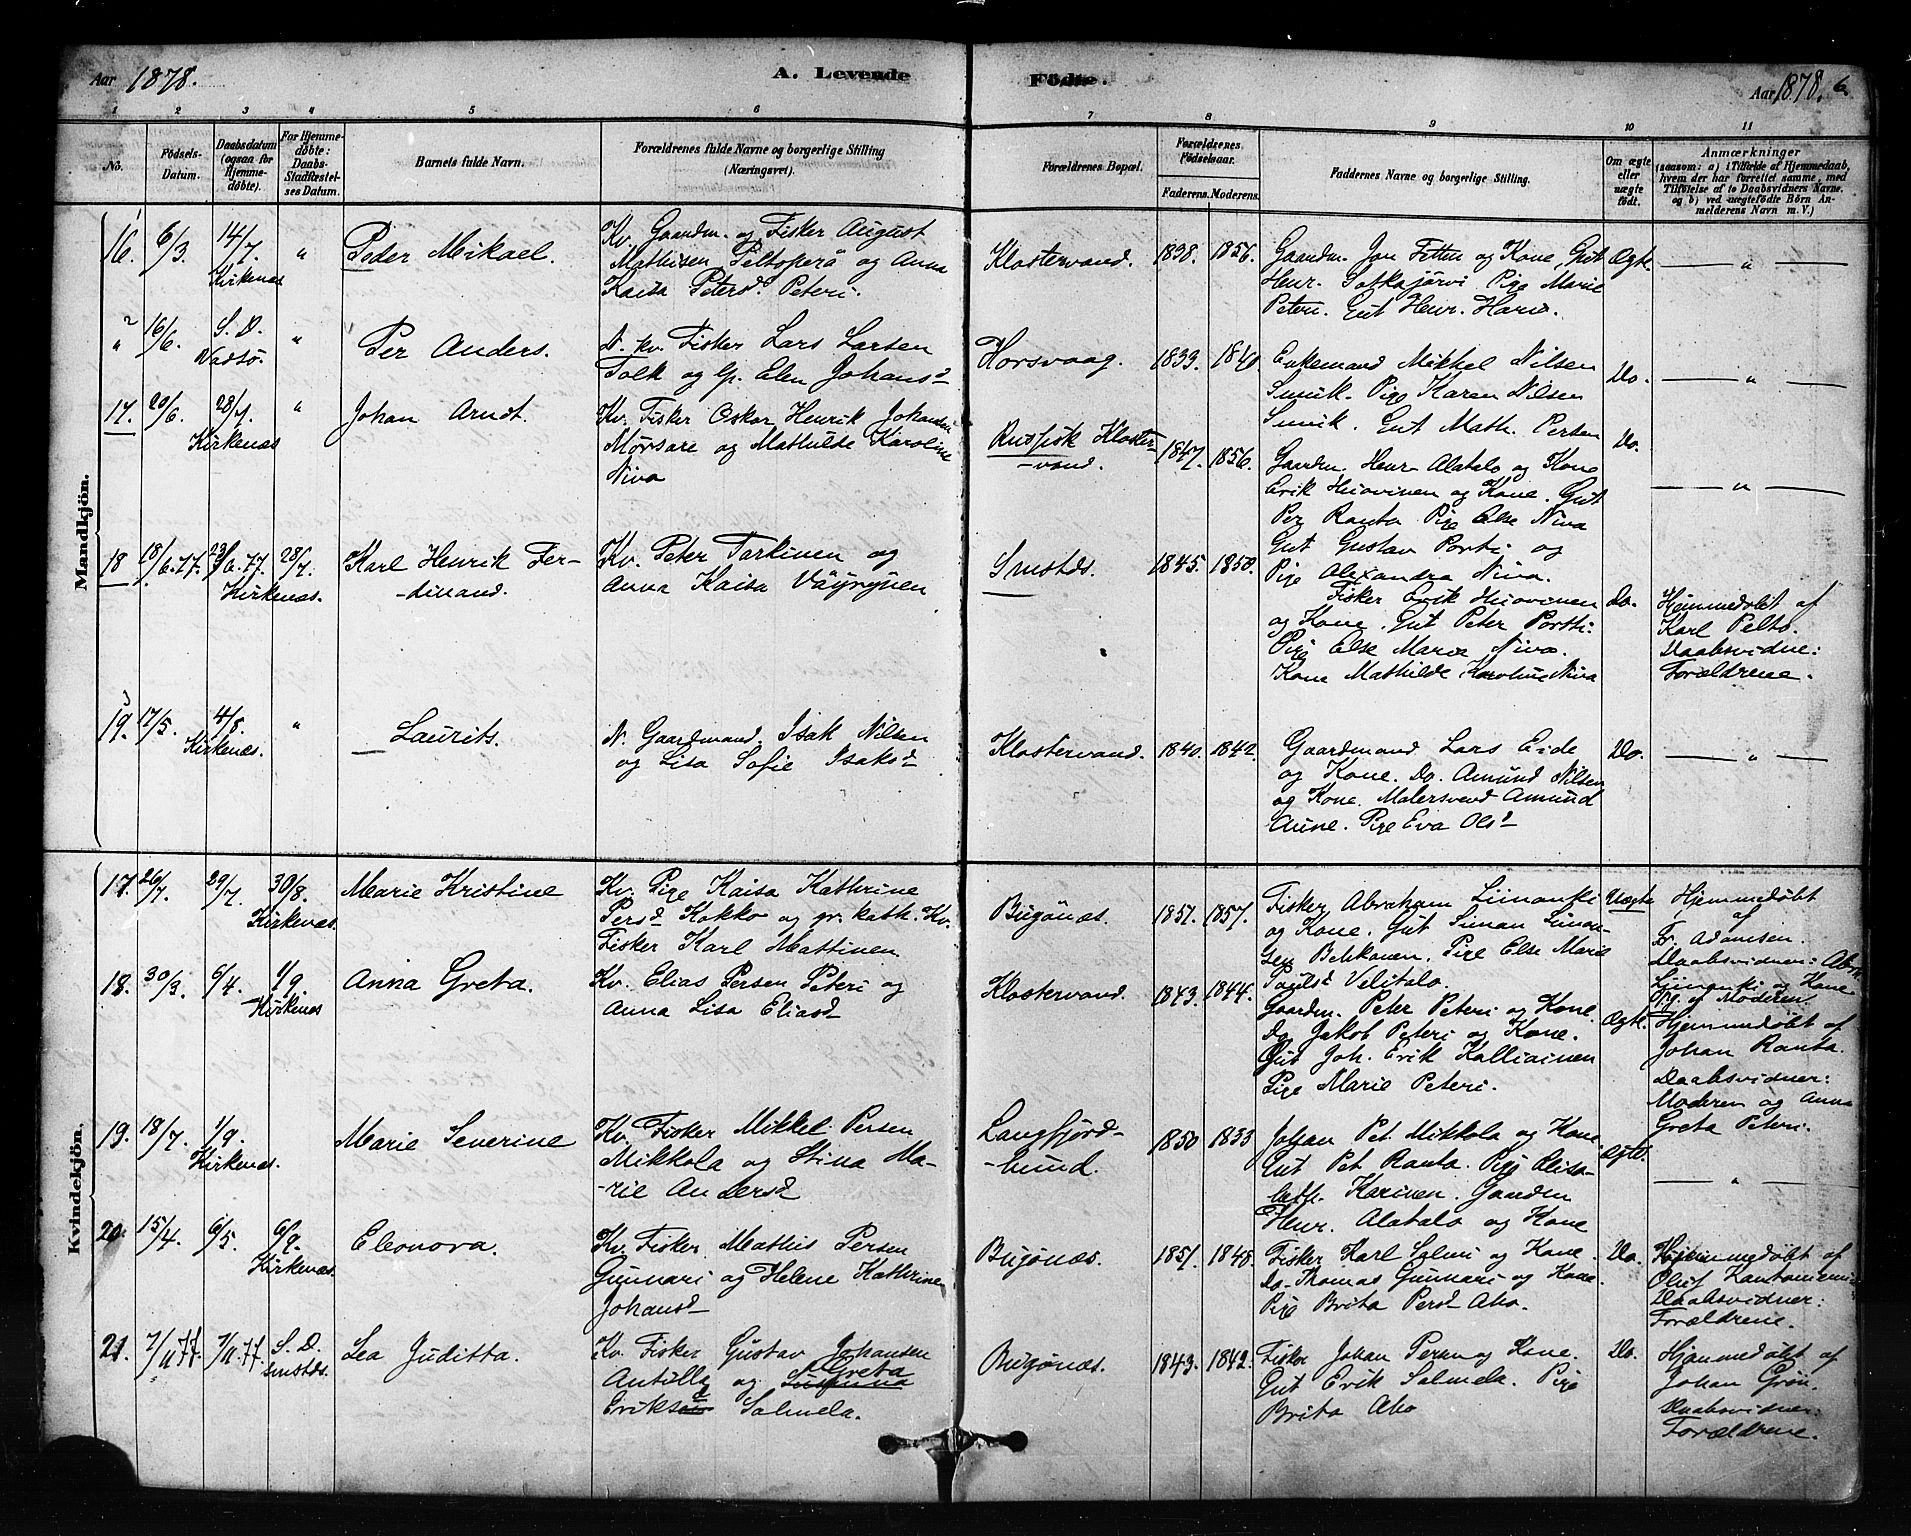 Aar 1878. A. Levende Födte. Aar 1878. 6.
1 2 3 4 5 6 7 8 9 10 11
No. Födsels-Datum. Daabsdatum (ogsaa for Hjemmedöbte). For Hjemmedöbte: Daabs-Stadfæstelses Datum. Barnets fulde Navn. Forældrenes fulde Navne og borgerlige Stilling (Næringsvei). Forældrenes Bopæl. Forældrenes Födselsaar. Faderens. Moderens. Faddernes Navne og borgerlige Stilling. Om ægte eller uægte födt. Anmærkninger (saasom: a) i Tilfælde af Hjemmedaab, hvem der har forrettet samme, med Tilföielse af to Daabsvidners Navne. og b) ved uægtefödte Börn Anmelderens Navn m. V.)
Mandkjön.
16. 6/3 14/7. Kirkenæs " Peder Mikael.
Kv. Gaardm. og Fisker August
Mathisen Peltoperä og Anna
Kaisa Petersd. Peteri.
Klostervand. 1838. 1856.
Gaardm. Jon Fetten og Kone, Gut
Henr. Sotkajärvi Pige Marie
Peteri. Gut Henr. Hario.
Ægte. — " —
" 16/6. S. D. Vadsö. " Per Anders.
N. kv. Fisker Lars Larsen
Tolk og lp. Elen Johansd
Korsvaag. 1833. 1840
Enkemand Mikkel Nilsen
Smuk. Pige Karen Nilsen
Smuk. Gut Math. Persen
Do. — " —
17. 20/6 28/7. Kirkenæs " Johan Arndt.
Kv. Fisker Oskar Henrik Johansen
Mörsare og Mathilde Karoline
Niva
Russisk Kloster-
-vand. 1847. 1856.
Gaardm. Henr. Alatalo og Kone
Erik Huovinen og Kone. Gut
Per Ranta Pige Else Niva
Gut Gustav Portti og
Pige Alexandra Niva.
Do. — " —
18 18/6.77. 23/6.77. Kirkenæs. 28/7. Karl Henrik Fer-
-dinand.
Kv. Peter Tarkinen og
Anna Kaisa Väyrynen
Smstds. 1845. 1850.
Fisker Erik Huovinen
og Kone. Gut Peter Portti.
Pige Else Marie Niva.
Kone Mathilde Karoline Niva
Do. Hjemmedöbt af
Karl Pelto.
Daabsvidne:
Forældrene.
19. 17/5. 4/8. Kirkenæs. " Laurits.
N. Gaardmand. Isak Nilsen
og Lisa Sofie Isaksd
Klostervand. 1840. 1842.
Gaardmand Lars Eide
og Kone. Do. Amund Nilsen
og Kone. Malersvend Amund
Aune. Pige Eva Olsd
Do. — " —
Kvindekjön.
17. 26/7. 29/7. 30/8. Kirkenæs. Marie Kristine
Kv. Pige Kaisa Kathrine
Persd Kokko og gr. kath. Kv.
Fisker Karl Mattinen
Bugönæs. 1851. 1857.
Fisker Abraham Liinanki
og Kone. Gut Simon Simon-
sen Pekkonen. Pige Else Marie
Poulsd Velitalo.
Uægte Hjemmedöbt
af
Fr. Adamsen.
Daabsvidner: Abr.
Liinanki og Kone
18. 30/3. 6/4. 1/9. Kirkenæs Anna Greta.
Kv. Elias Persen Peteri og
Anna Lisa Eliasd
Klostervand. 1843. 1844.
Gaardm. Peter Peteri og Kone.
Do Jakob Peteri og Kone.
Gut Joh. Erik Kalliainen
Pige Marie Peteri.
Ægte. Hjemmedöbt af
Johan Ranta.
Daabsvidner:
Moderen og Anna
Greta Peteri.
19. 18/7. 1/9. Kirkenæs. Marie Severine
Kv. Fisker Mikkel Persen
Mikkola og Stina Ma-
-rie Andersd
Langfjord-
-bund. 1850 1853
Johan Pet. Mikkola og Kone
Gut Pet. Ranta. Pige Elisa-
beth. Karinen. Gaardm
Henr. Alatalo og Kone
Ægte. — " —
20. 15/4. 6/5. 6/9. Kirkenæs Eleonora.
Kv. Fisker Mathis Persen
Gunnari og Helene Kathrine
Johansd
Bugönæs. 1851. 1848.
Fisker Karl Salmi og Kone.
Do. Thomas Gunnari og Kone.
Pige Brita Persd Aho.
Do. Hjemmedöbt af
Oluf
Daabsvidner:
Forældrene.
21. 7/11 77. 7/11.77. S. D. smstds. Lea Juditta.
Kv. Fisker Gustav Johansen
Antilla og Susanna Greta
Eriksd Salmela.
Bugönæs. 1843. 1842.
Fisker Johan Persen og Kone.
Gut Erik Salmela. Pige
Brita Aho
Do. Hjemmedöbt af
Johan Grön.
Daabsvidner:
Forældrene.